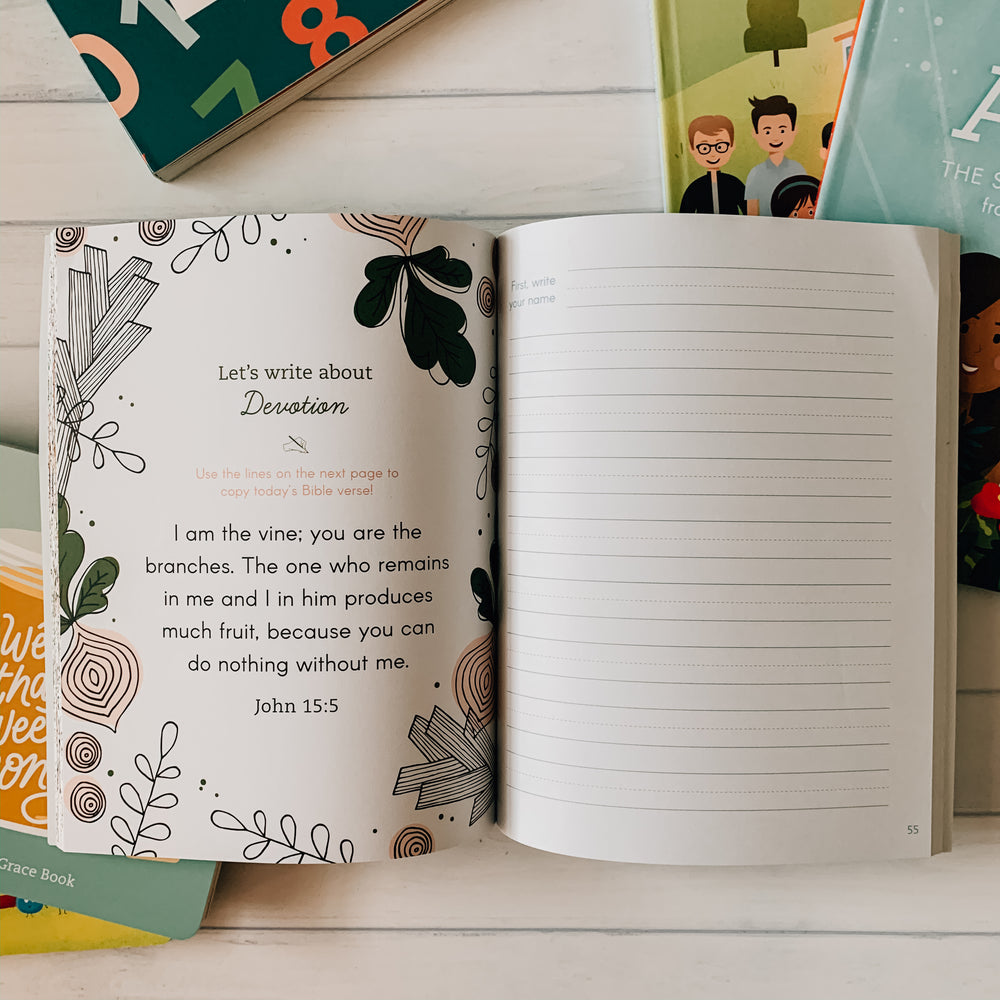 0
1
8
7
A
THE
fro
Let's write about
Devotion
Use the lines on the next page to
copy today's Bible verse!
I am the vine; you are the
branches. The one who remains
in me and I in him produces
much fruit, because you can
do nothing without me.
John 15:5
First, write
your name
55
Grace Book